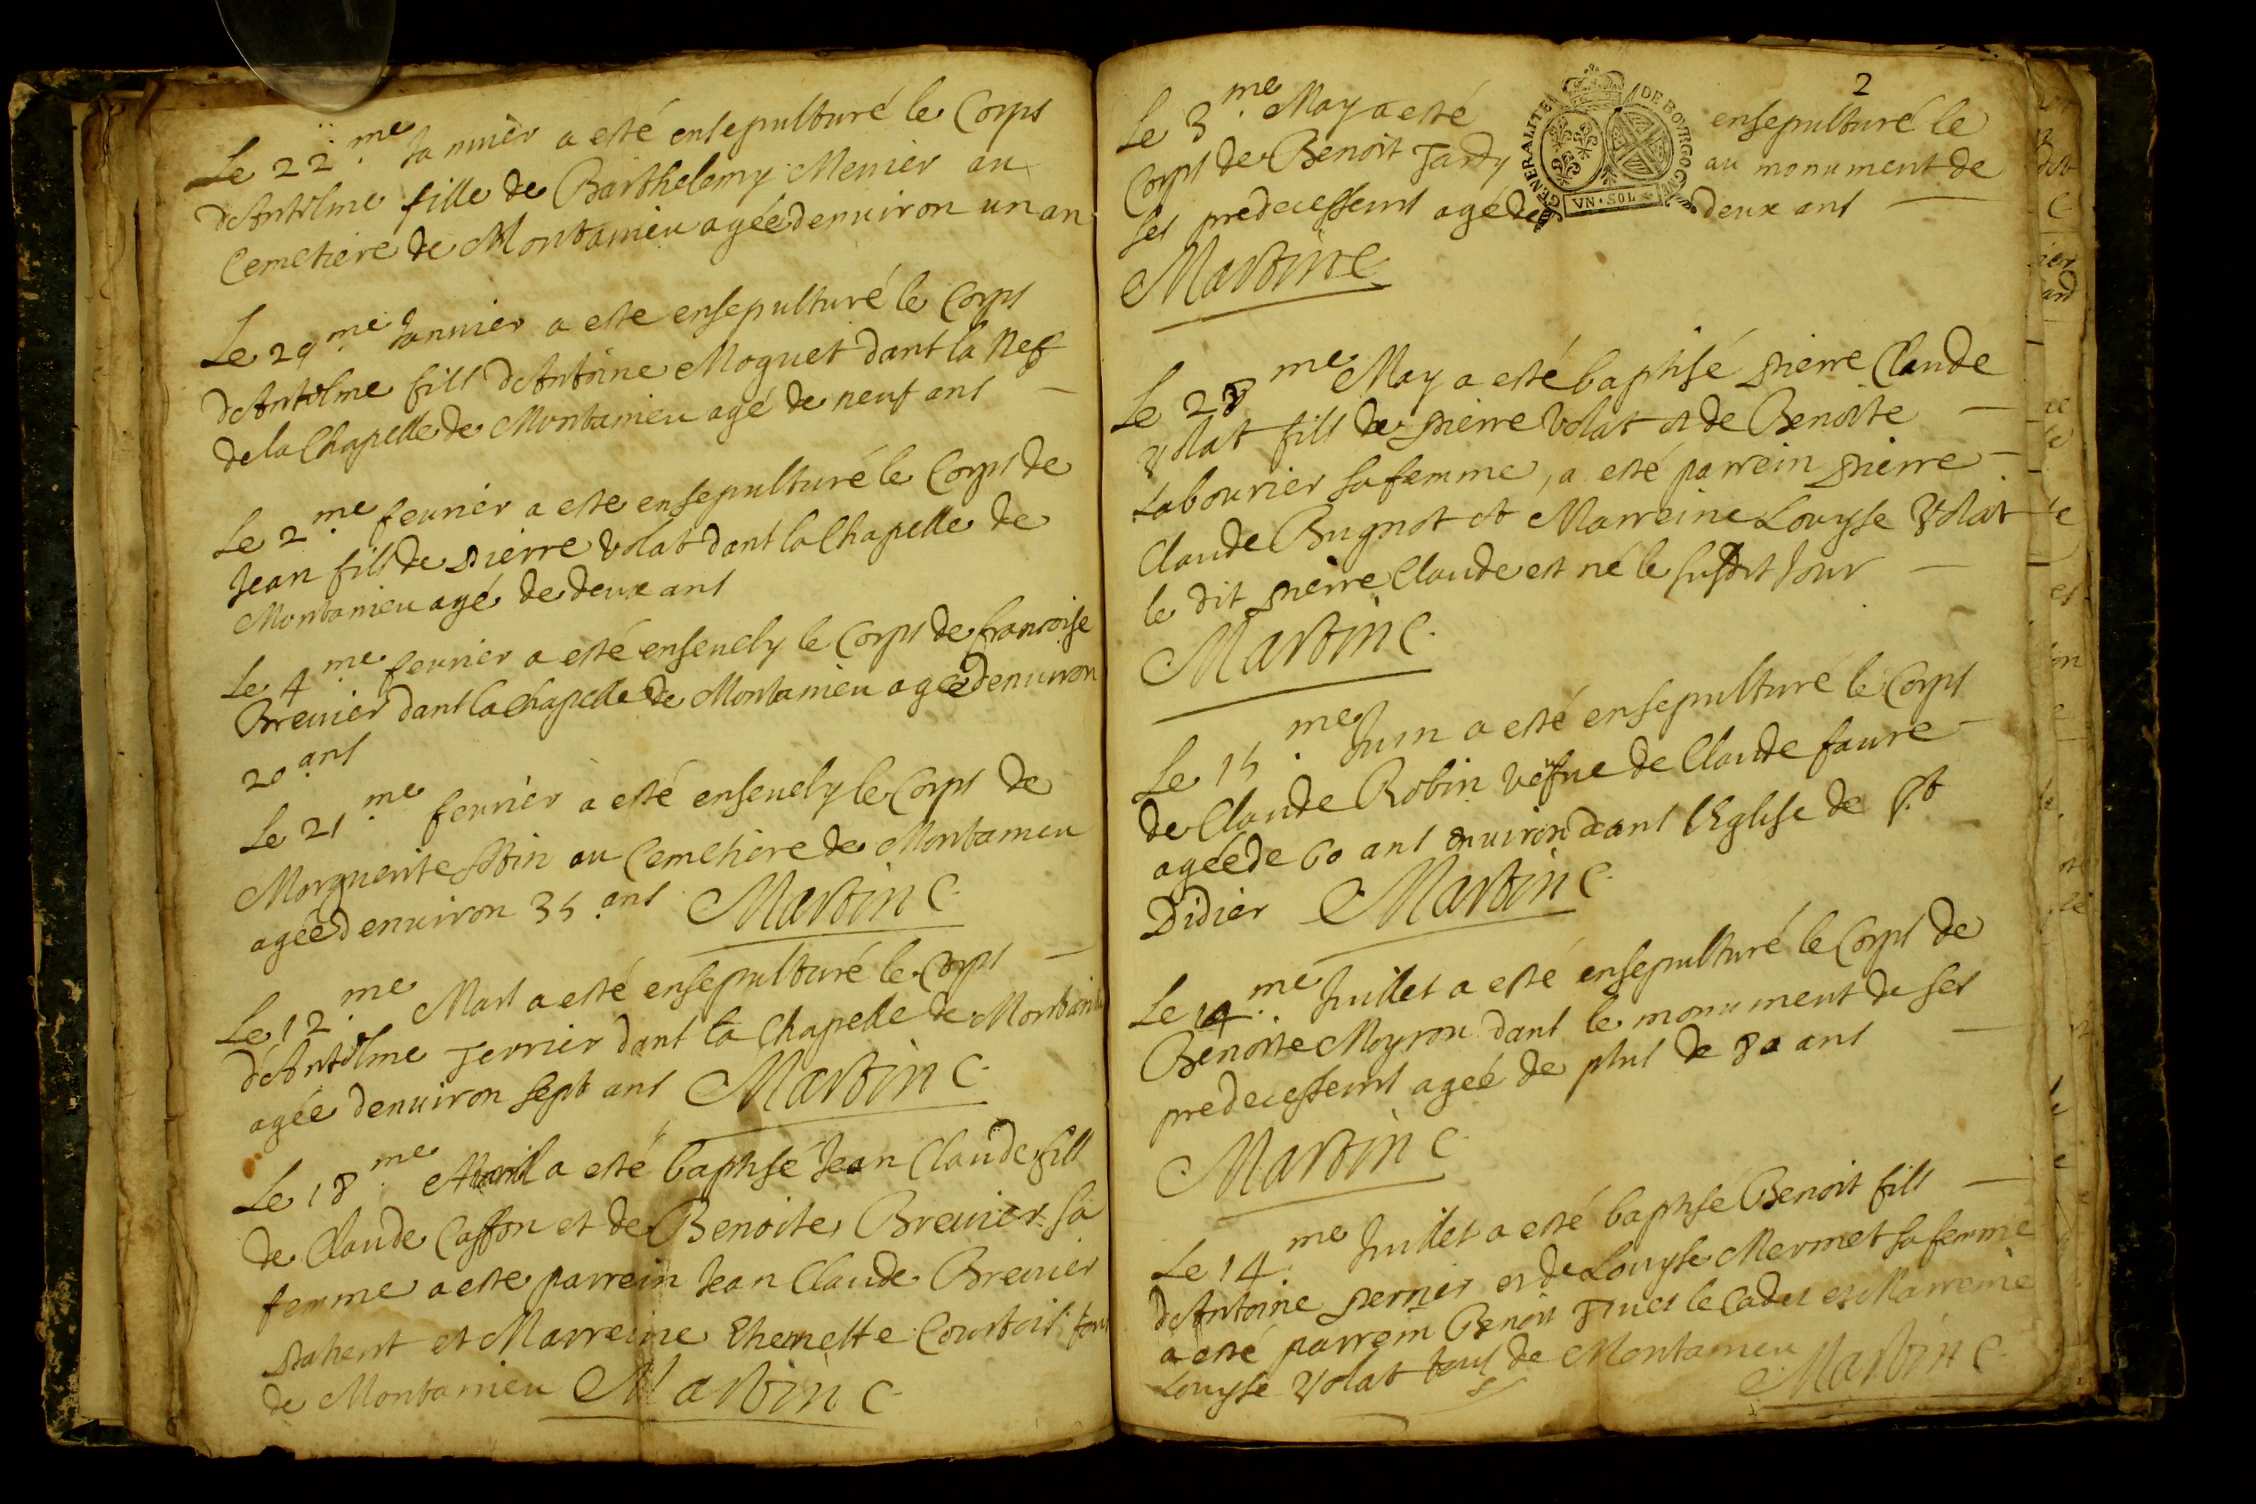 Le 22.me Januier a esté ensepulturé le Corps
d'Antelme fille de Barthelemy Menier au
Cemetiere de Montanieu agée denuiron un an
Le 29.me Januier a esté ensepulturé le Corps
d'Antelme fils d'Antoine Moguet dans la Nef
de la Chapelle de Montanieu agé de neuf ans
Le 2.me feurier a esté ensepulturé le Corps de
Jean fils de Pierre Volat dans la Chapelle de
Montanieu agé de deux ans
Le 4.me feurier a esté enseuely le Corps de francoise
Breuier dans la Chapelle de Montanieu agée denuiron
20 ans
Le 21.me feurier a esté enseuely le Corps de
Marguerite au Cemetiere de Montanieu
agée denuiron 35 ans Martin C.
Le 12.me Mars a esté ensepulturé le Corps
d'Antelme Terrier dans la Chapelle de Montanieu
agée denuiron sept ans Martin C.
Le 18.me Auril a esté baptisé Jean Claude fils
de Claude Casson et de Benoite Breuier sa
femme a esté parrein Jean Claude Breuier
et Marreine Courtois tous
de Montanieu Martin C.
2
GENERALITE DE BOVRGOGNE
VN·SOL
Le 3.me May a esté ensepulturé le
Corps de Benoit Tardy au monument de
ses predecesseurs agé de deux ans
Martin C
Le 28.me May a esté baptisé Pierre Claude
Volat fils de Pierre Volat et de Benoite
Labourier sa femme, a esté parrein Pierre
Claude Bugnot et Marreine Louyse Volat
le dit Pierre Claude est né le susdit Jour
Martin C.
Le 15.me Juin a esté ensepulturé le Corps
de Claude Robin vefue de Claude faure
agée de 60 ans enuiron dans l'Eglise de St
Didier Martin C.
Le me Juillet a esté ensepulturé le Corps de
Benoite Moyron dans le monument de ses
predecesseurs ageé de plus de 80 ans
Martin C
Le 14.me Juillet a esté baptisé Benoit fils
d'Antoine Perrier et de Louyse Mermet sa femme
a esté parrein Benoit le Cadet et Marreine
Louyse Volat tous de Montanieu
Martin C.